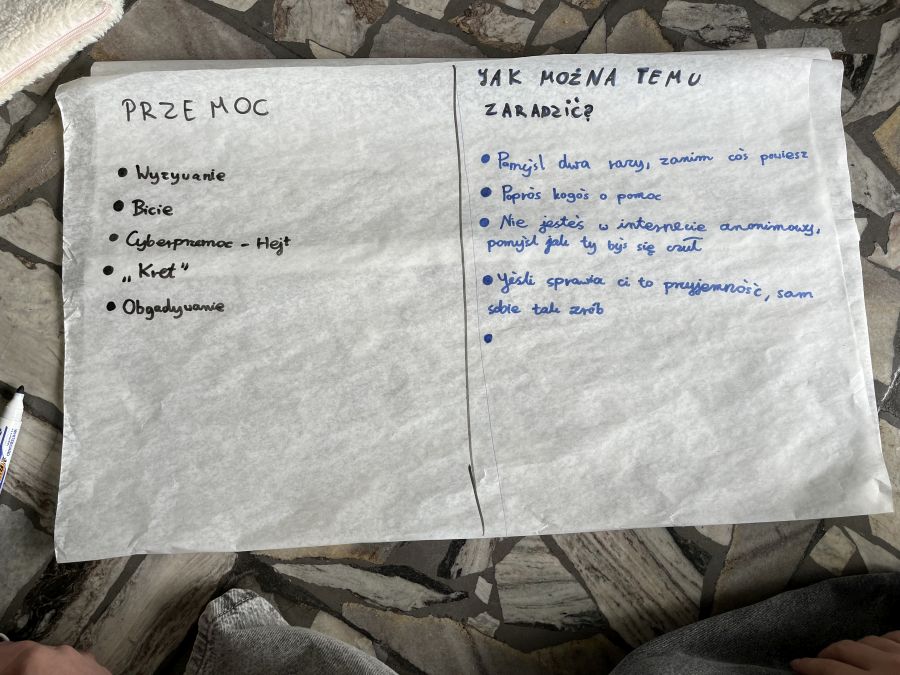 PRZEMOC
• Wyzywanie
• Bicie
• Cyberprzemoc - Hejt
• „Kret"
• Obgadywanie
JAK MOŻNA TEMU
ZARADZIĆ?
• Pomyśl dwa razy, zanim coś powiesz
• Poproś kogoś o pomoc
• Nie jesteś w internecie anonimowy,
pomyśl jak ty byś się czuł
• Jeśli sprawia ci to przyjemność, sam
sobie tak zrób
•